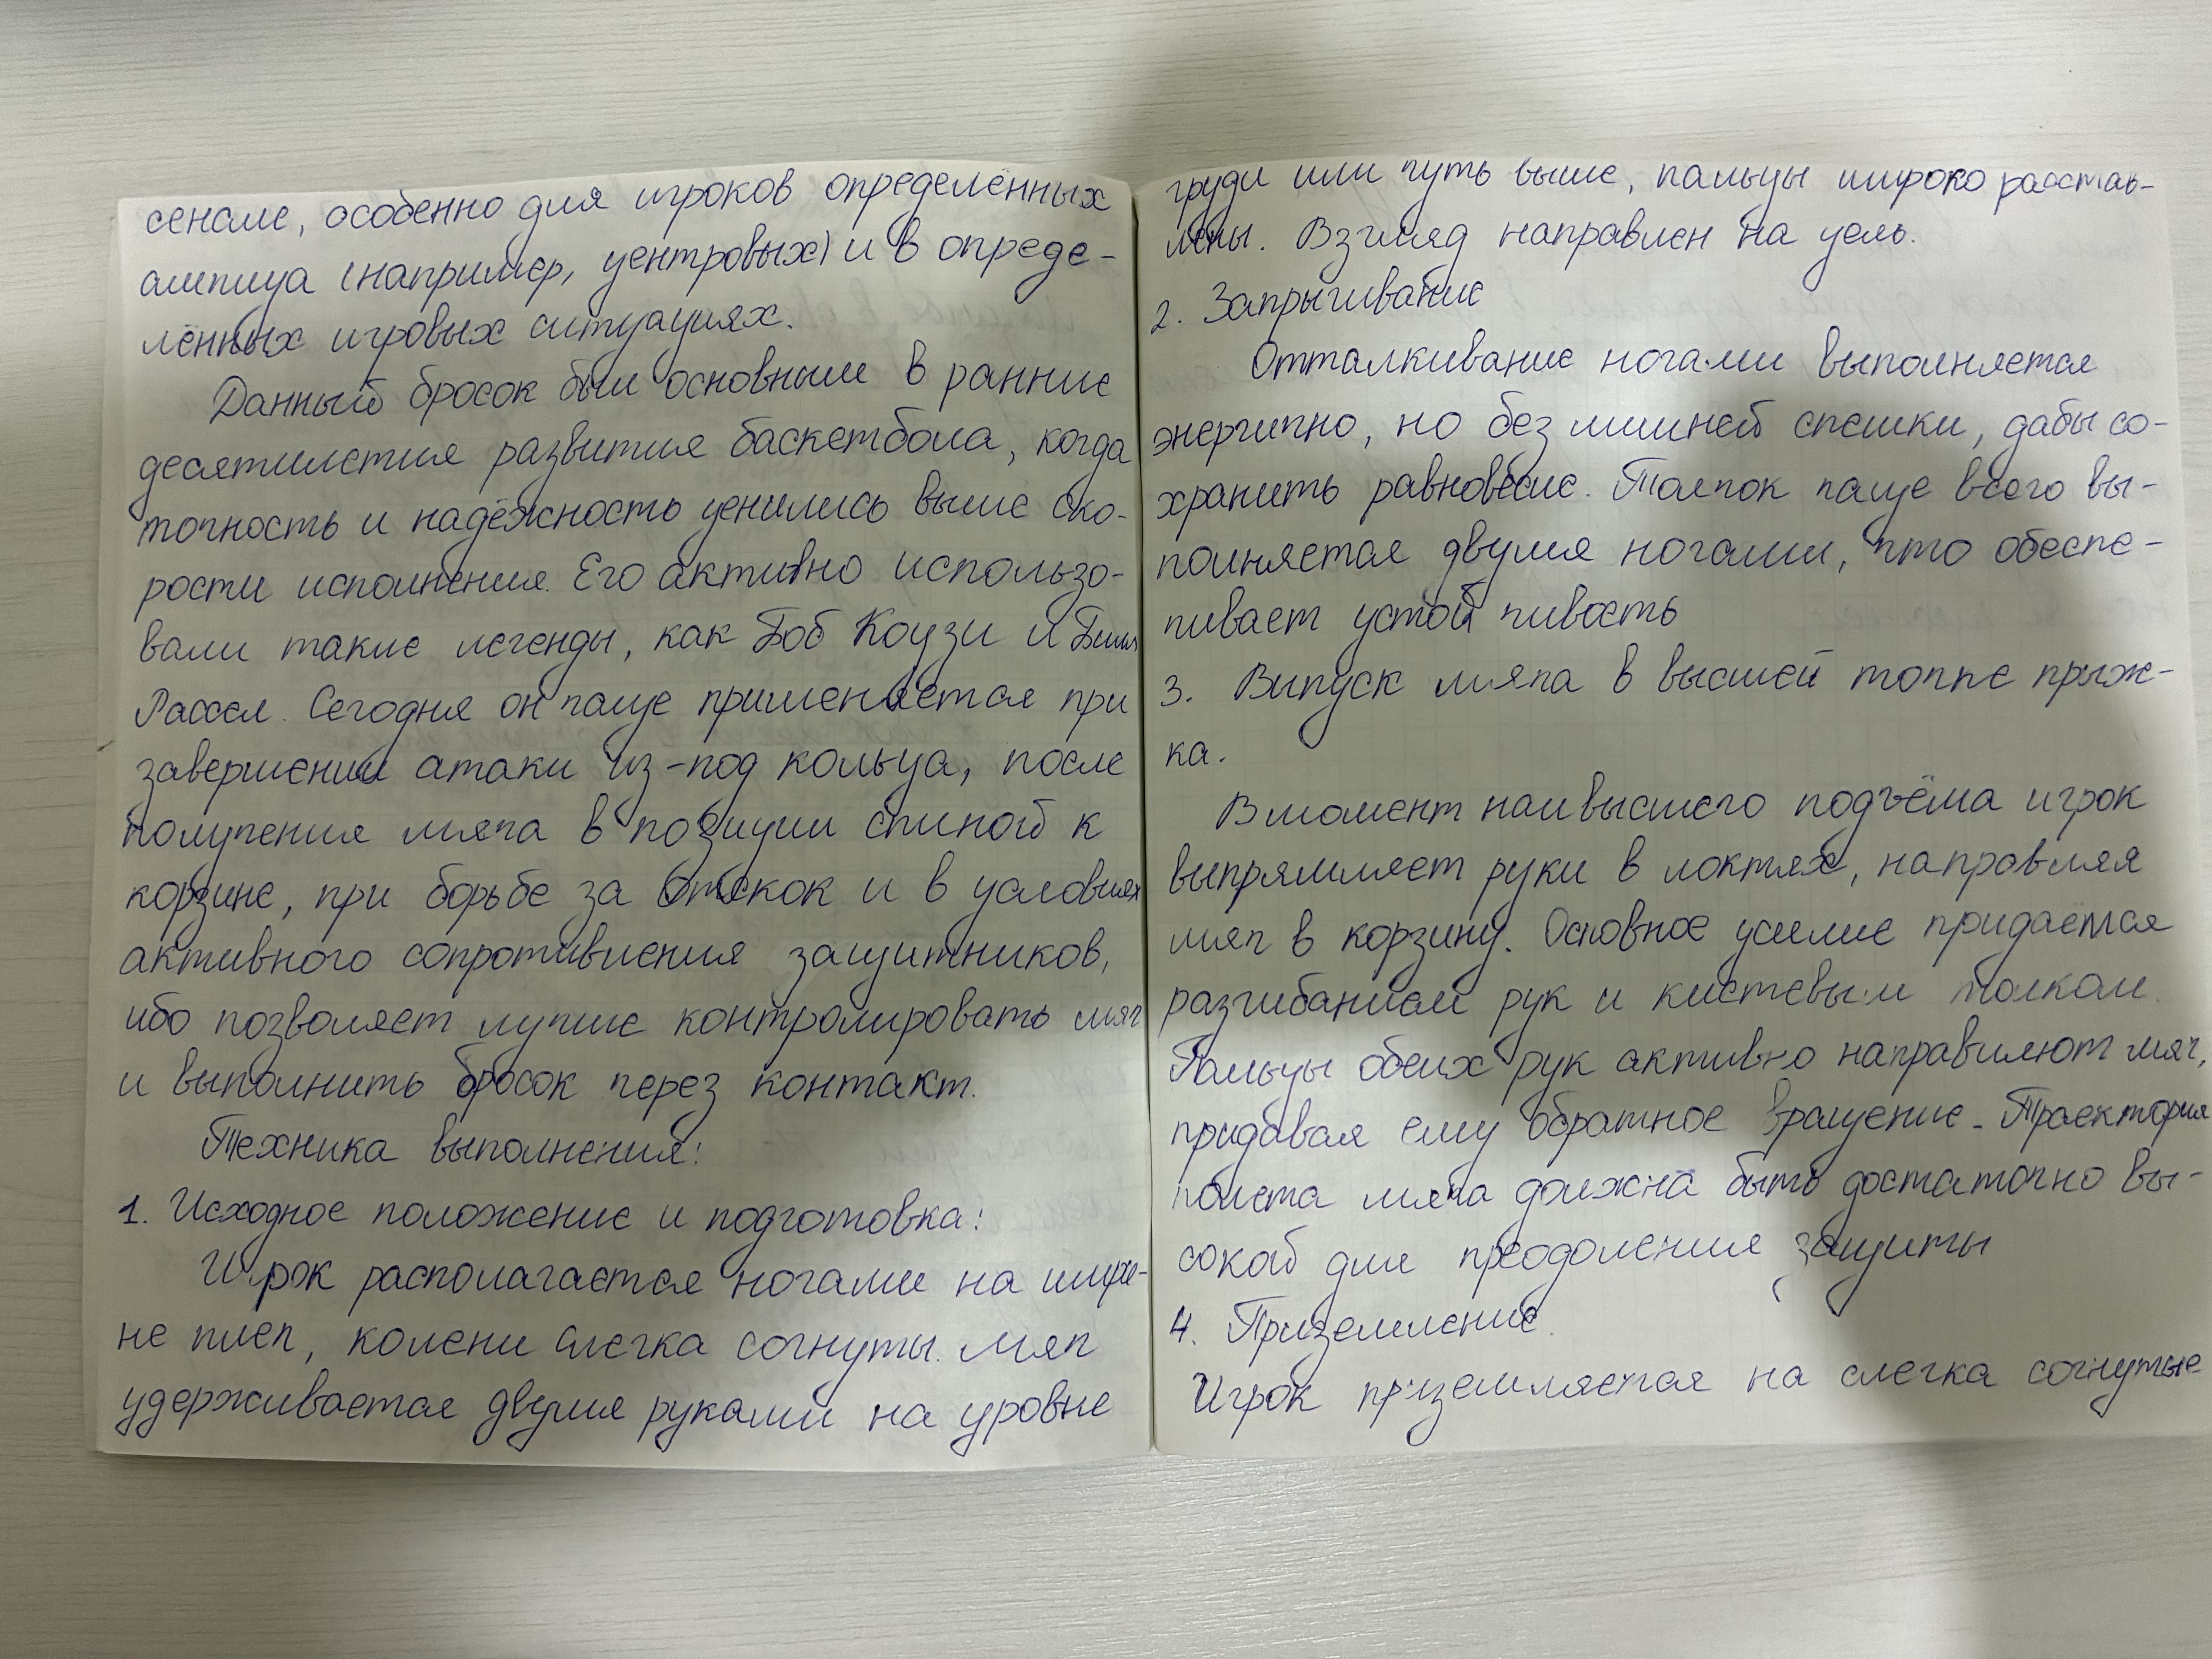 сенале, особенно для игроков определённых
амплуа (например, центровых) и в опреде-
лённых игровых ситуациях.
Данный бросок был основным в ранние
десятилетия развития баскетбола, когда
точность и надёжность ценились выше ско-
рости исполнения. Его активно использо-
вали такие легенды, как Боб Коузи и Билл
Рассел. Сегодня он чаще применяется при
завершении атаки из-под кольца, после
получения мяча в позиции спиной к
корзине, при борьбе за отскок и в условиях
активного сопротивления защитников,
ибо позволяет лучше контролировать мяч
и выполнить бросок через контакт.
Техника выполнения:
1. Исходное положение и подготовка:
Игрок располагается ногами на шири-
не плеч, колени слегка согнуты. Мяч
удерживается двумя руками на уровне
груди или чуть выше, пальцы широко расстав-
лены. Взгляд направлен на цель.
2. Запрыгивание
Отталкивание ногами выполняется
энергично, но без лишней спешки, дабы со-
хранить равновесие. Толчок чаще всего вы-
полняется двумя ногами, что обеспе-
чивает устойчивость
3. Выпуск мяча в высшей точке прыж-
ка.
В момент наивысшего подъёма игрок
выпрямляет руки в локтях, направляя
мяч в корзину. Основное усилие придаётся
разгибанием рук и кистевым толчком.
Пальцы обеих рук активно направляют мяч,
придавая ему обратное вращение. Траектория
полета мяча должна быть достаточно вы-
сокой для преодоления защиты
4. Приземление.
Игрок приземляется на слегка согнутые